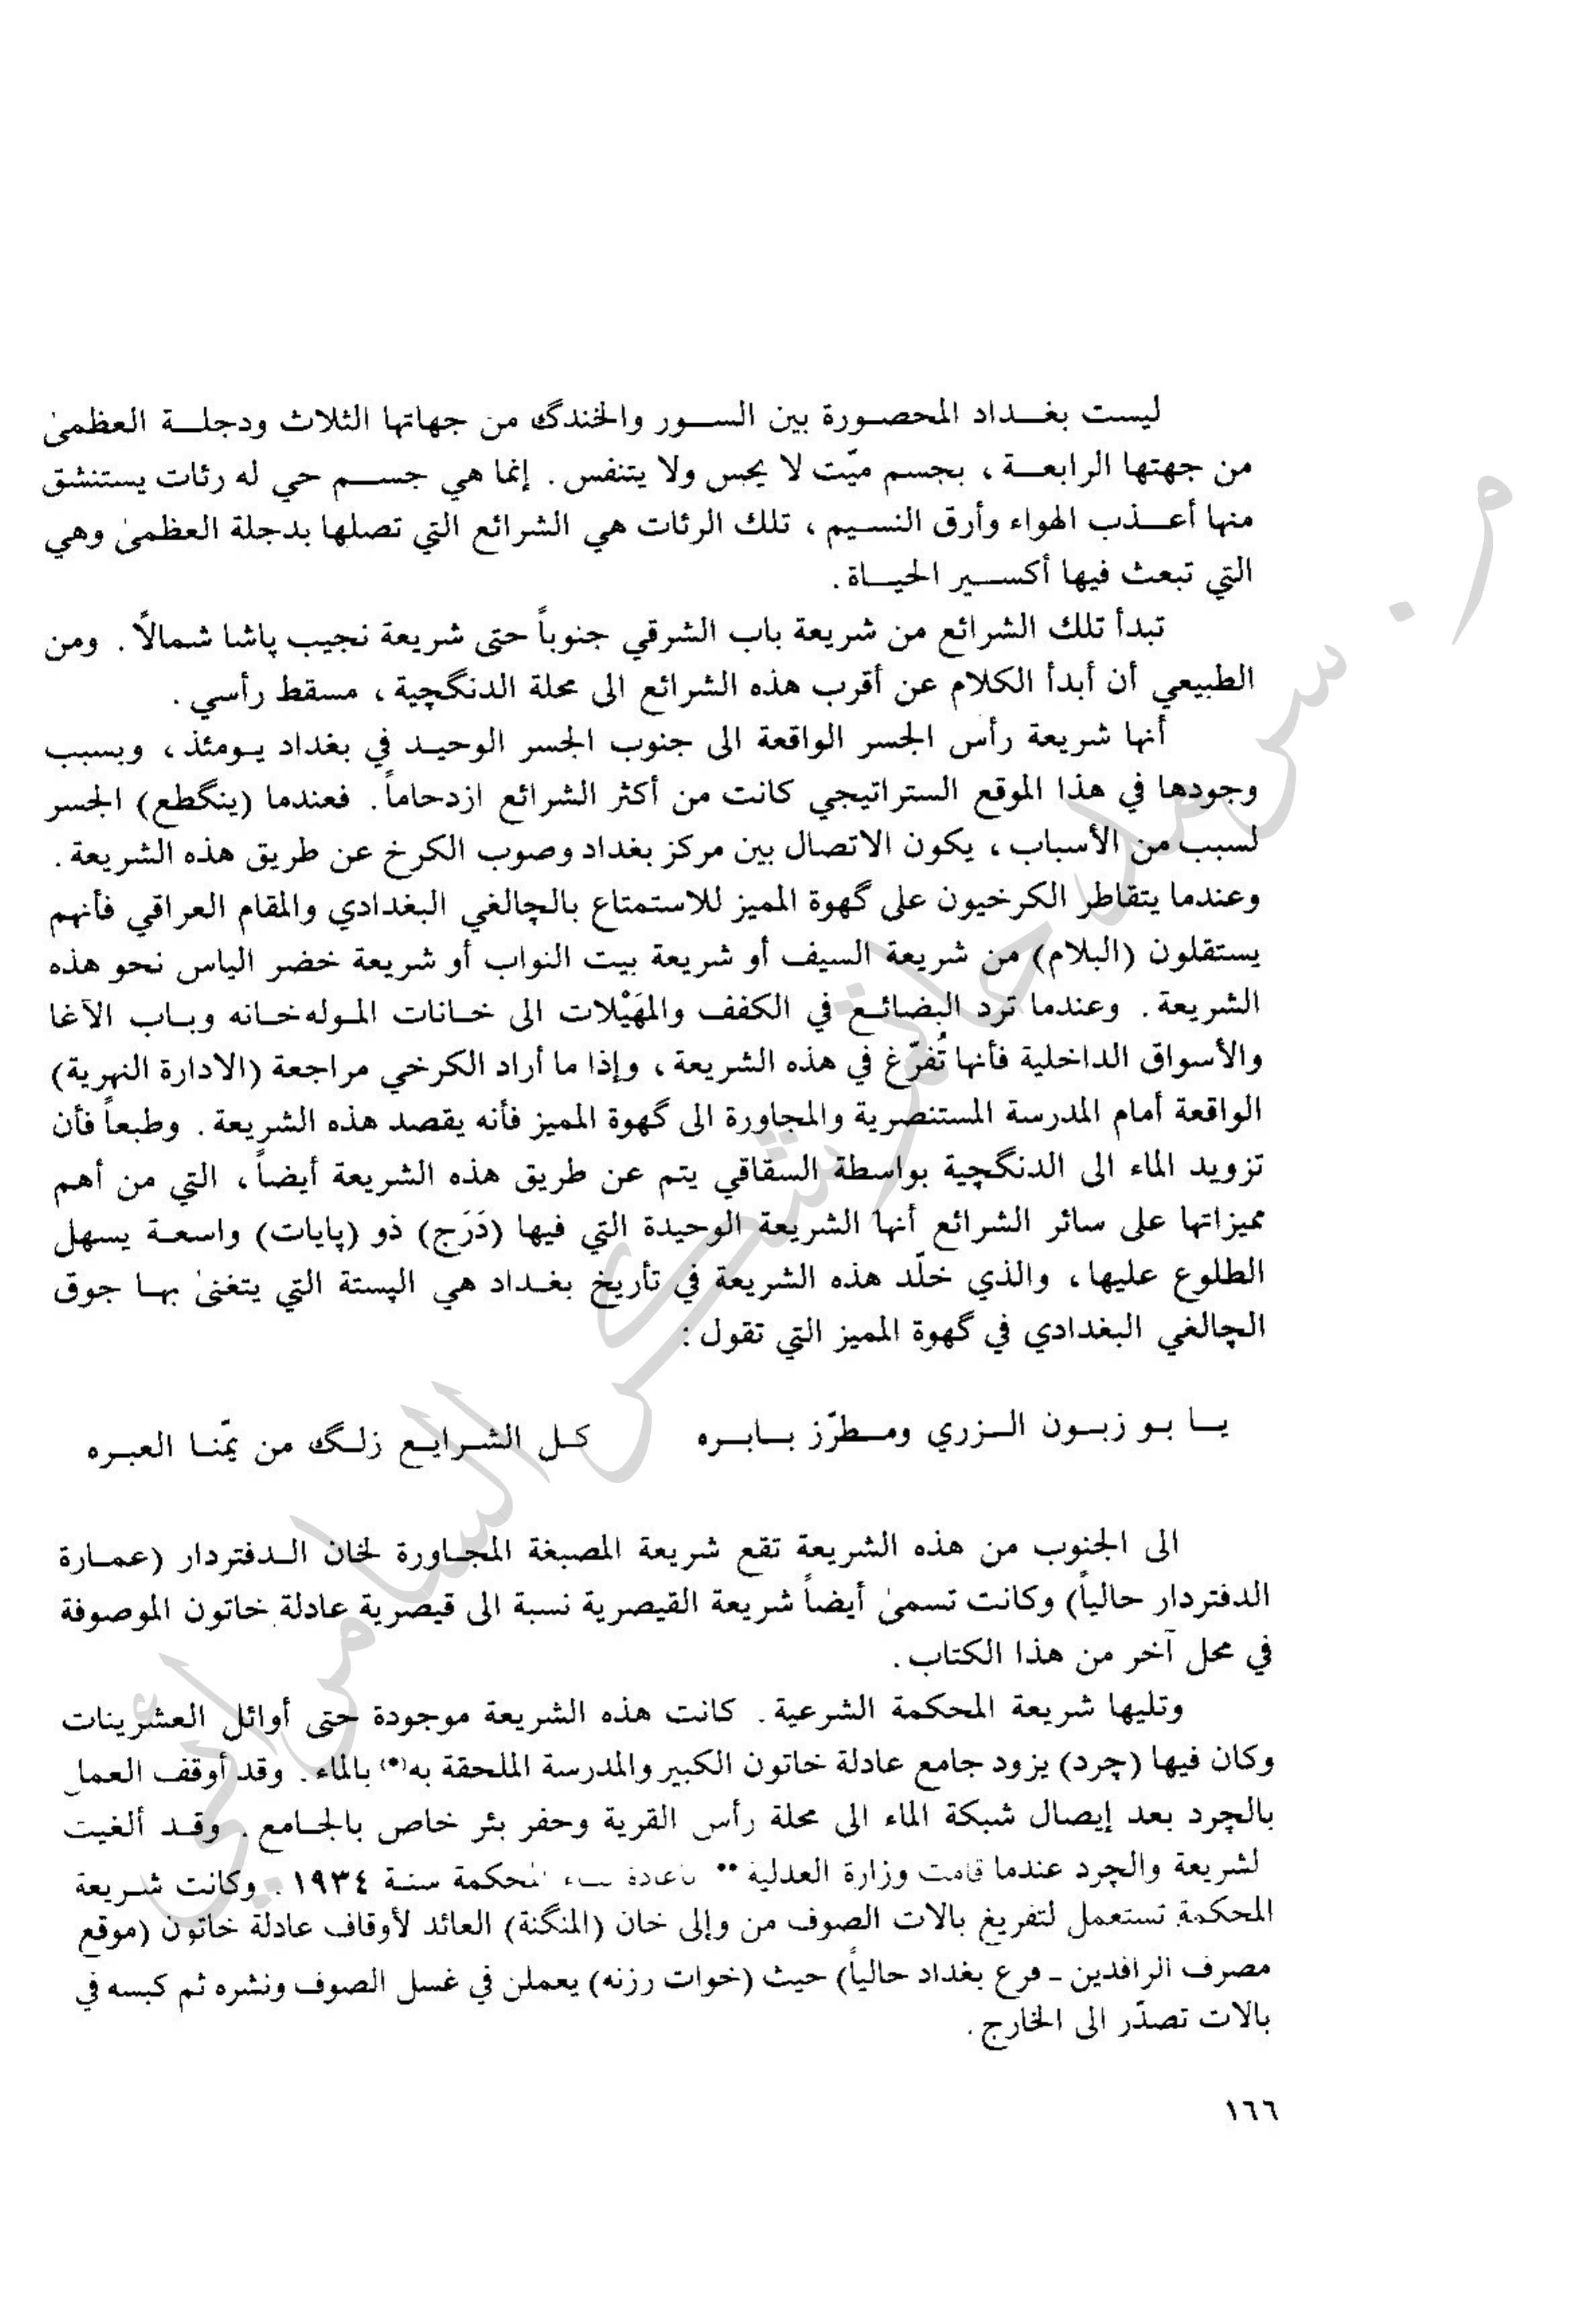 ليست بغـداد المحصـورة بين السـور والخندگ من جهاتها الثلاث ودجلـة العظمىٰ
من جهتها الرابعـة ، بجسم ميّت لا يحس ولا يتنفس . إنما هي جسـم حي له رئات يستنشق
منها أعـذب الهواء وأرق النسـيم ، تلك الرئات هي الشرائع التي تصلها بدجلة العظمىٰ وهي
التي تبعث فيها أكسـير الحيـاة .
تبدأ تلك الشرائع من شريعة باب الشرقي جنوباً حتى شريعة نجيب پاشا شمالاً . ومن
الطبيعي أن أبدأ الكلام عن أقرب هذه الشرائع الى محلة الدنگچية ، مسقط رأسي .
أنها شريعة رأس الجسر الواقعة الى جنوب الجسر الوحيـد في بغداد يـومئذ ، وبسبب
وجودها في هذا الموقع الستراتيجي كانت من أكثر الشرائع ازدحاماً . فعندما (ينگطع) الجسر
لسبب من الأسباب ، يكون الاتصال بين مركز بغداد وصوب الكرخ عن طريق هذه الشريعة .
وعندما يتقاطر الكرخيون على گهوة المميز للاستمتاع بالچالغي البغدادي والمقام العراقي فأنهم
يستقلون (البلام) من شريعة السيف أو شريعة بيت النواب أو شريعة خضر الياس نحو هذه
الشريعة . وعندما ترد البضائـع في الكفف والمهَيْلات الى خـانات المـوله‌خـانه وبـاب الآغا
والأسواق الداخلية فأنها تُفرّغ في هذه الشريعة ، وإذا ما أراد الكرخي مراجعة (الادارة النهرية)
الواقعة أمام المدرسة المستنصرية والمجاورة الى گهوة المميز فأنه يقصد هذه الشريعة . وطبعاً فأن
تزويد الماء الى الدنگچية بواسطة السقاقي يتم عن طريق هذه الشريعة أيضاً ، التي من أهم
مميزاتها على سائر الشرائع أنها الشريعة الوحيدة التي فيها (دَرَج) ذو (پايات) واسعـة يسهل
الطلوع عليها ، والذي خلّد هذه الشريعة في تأريخ بغـداد هي الپستة التي يتغنىٰ بهـا جوق
الچالغي البغدادي في گهوة المميز التي تقول :
يـا بـو زبـون الـزري ومـطرّز بـابـره كـل الشـرايـع زلـگ من يمّنـا العبـره
الى الجنوب من هذه الشريعة تقع شريعة المصبغة المجـاورة لخان الـدفتردار (عمـارة
الدفتردار حالياً) وكانت تسمىٰ أيضاً شريعة القيصرية نسبة الى قيصرية عادلة خاتون الموصوفة
في محل آخر من هذا الكتاب .
وتليها شريعة المحكمة الشرعية . كانت هذه الشريعة موجودة حتى أوائل العشرينات
وكان فيها (چرد) يزود جامع عادلة خاتون الكبير والمدرسة الملحقة به(*) بالماء . وقد أوقف العمل
بالچرد بعد إيصال شبكة الماء الى محلة رأس القرية وحفر بئر خاص بالجـامع . وقـد ألغيت
لشريعة والچرد عندما قامت وزارة العدلية ** المحكمة سنـة ١٩٣٤ . وكانت شـريعة
المحكمة تستعمل لتفريغ بالات الصوف من وإلى خان (المنگنة) العائد لأوقاف عادلة خاتون (موقع
مصرف الرافدين - فرع بغداد حالياً) حيث (خوات رزنه) يعملن في غسل الصوف ونشره ثم كبسه في
بالات تصدّر الى الخارج .
١٦٦